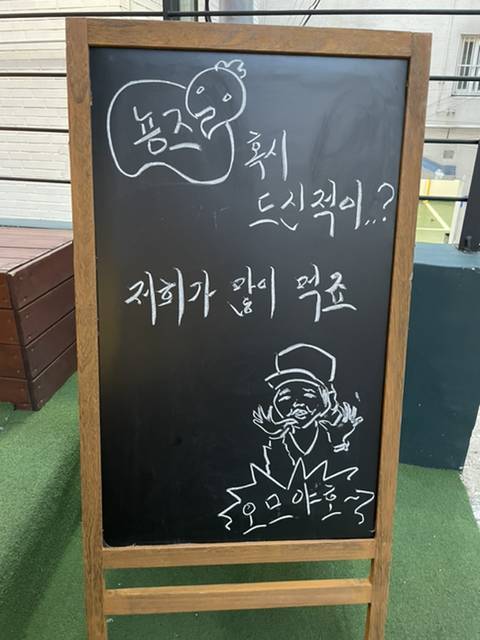 뇽즈
혹시
드신적이..?
저희가 많이 먹죠
오모야호~